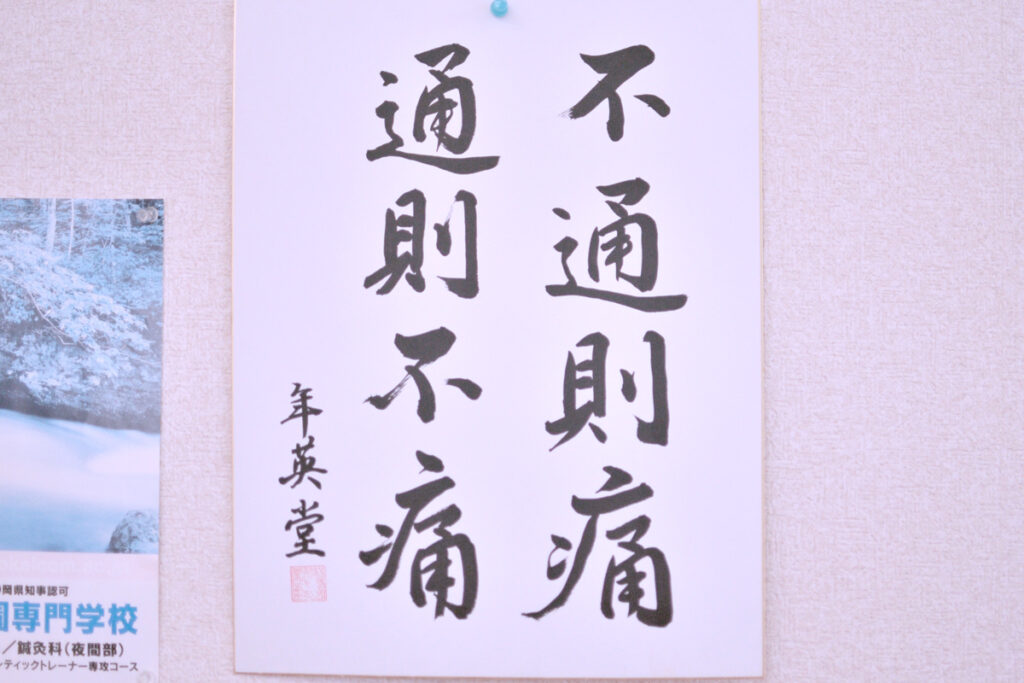 不通則痛
通則不痛
年英堂
岡県知事認可
専門学校
／鍼灸科（夜間部）
ティックトレーナー専攻コース